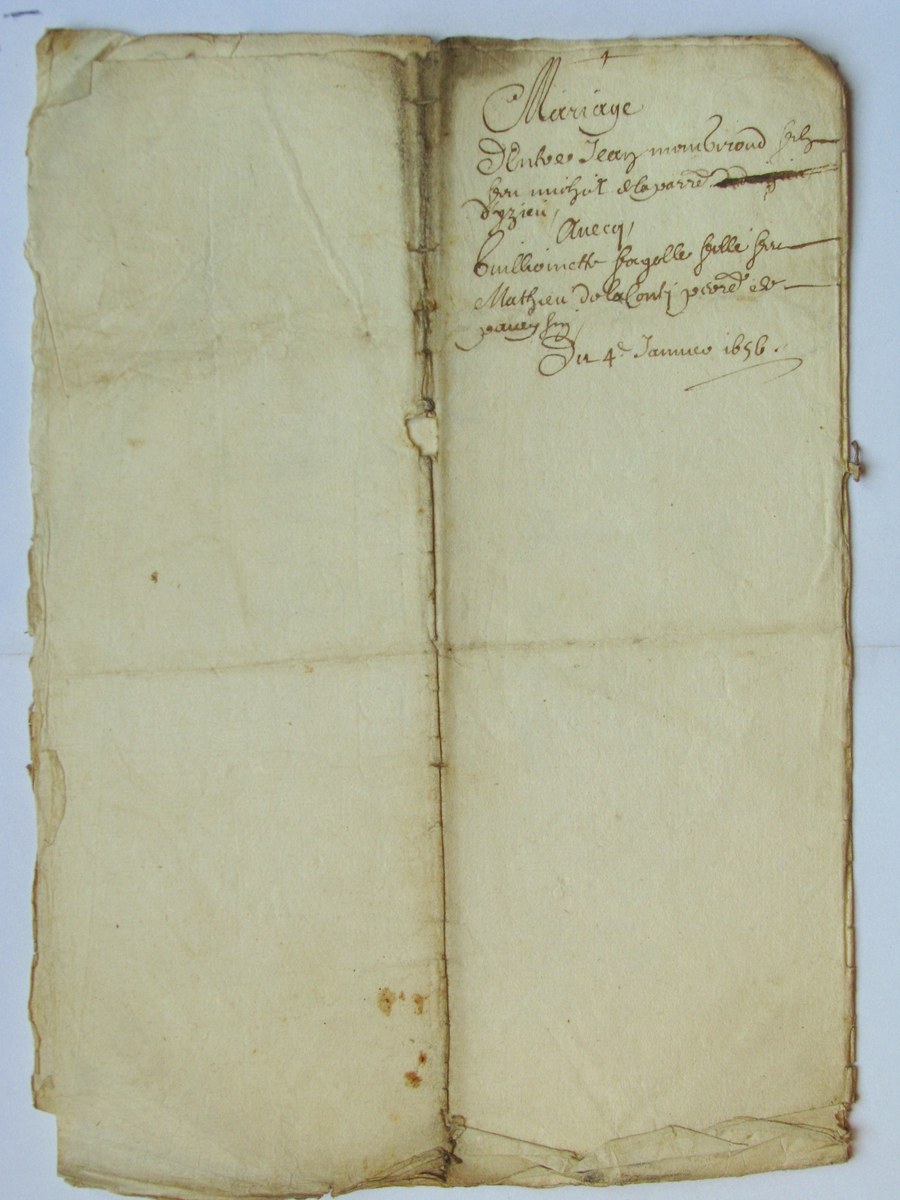 Mariage
D'Entre Jean monbrond filz
feu michel de la parre
d'yzieu,
Avecq,
Guilliomette fagolle fille feu
Mathieu de la Conti
Du 4e Janvier 1656.